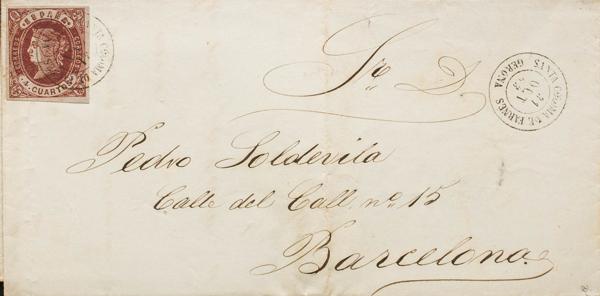 ESPAÑA
4 CUARTOS
Sr. D.
SANTA COLOMA DE FARNES
31
OCT
63
GERONA
Pedro Soldevila
Calle del Call nº 15
Barcelona